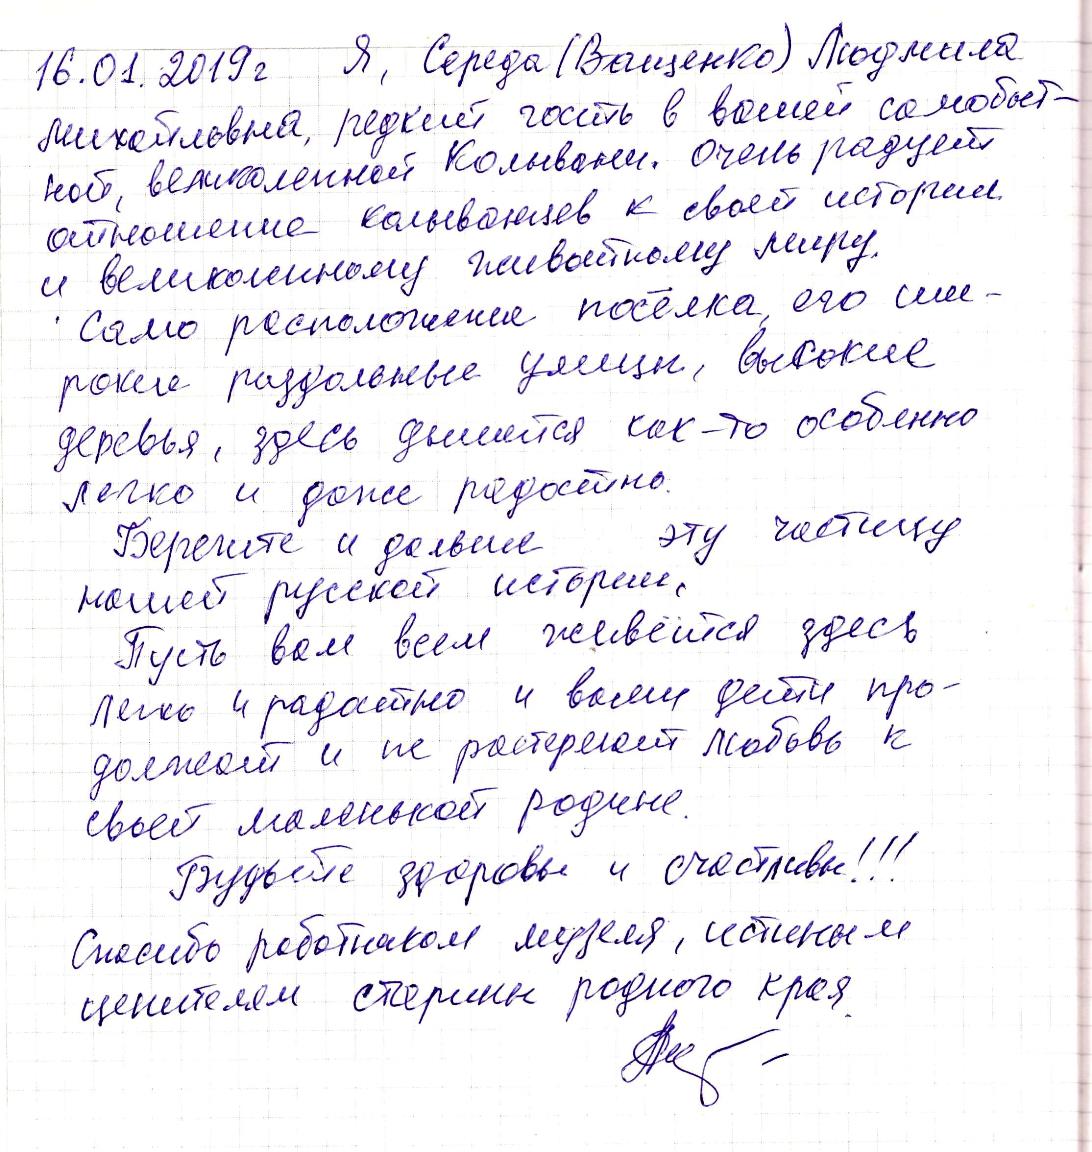 16.01.2019г Я, Середа (Ващенко) Людмила
Михайловна, редкий гость в вашей самобыт-
ной, великолепной Колывани. Очень радует
отношение колыванцев к своей истории
и великолепному животному миру.
Само расположение посёлка, его ши-
рокие раздольные улицы, высокие
деревья, здесь дышится как-то особенно
легко и даже радостно.
Берегите и дальше эту частицу
нашей русской истории.
Пусть вам всем живётся здесь
легко и радостно и ваши дети про-
должают и не растеряют любовь к
своей маленькой родине.
Будьте здоровы и счастливы!!!
Спасибо работникам музея, истиным
ценителям старины родного края.